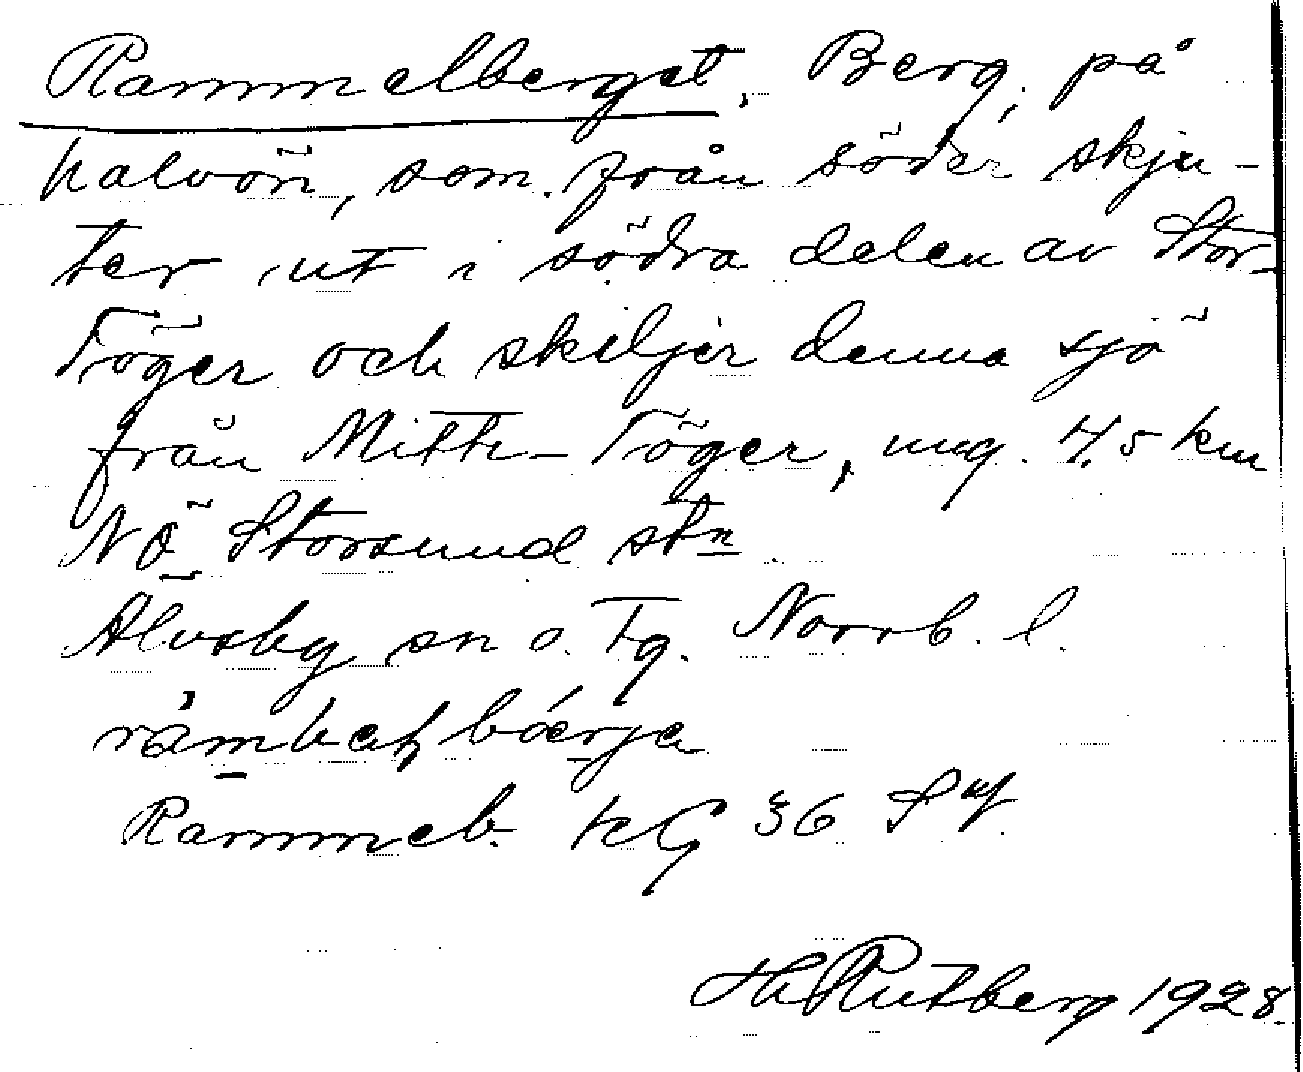 Rammelberget. Berg, på
halvön, som från söder skju-
ter ut i södra delen av Stor-
Töger och skiljer denna sjö
från Mitti-Töger, ung. 4.5 km
NÖ Storsund stn
Älvsby sn o. Tg. Norrb. l.
Rammelb. KG 36 Sv
H Rutberg 1928